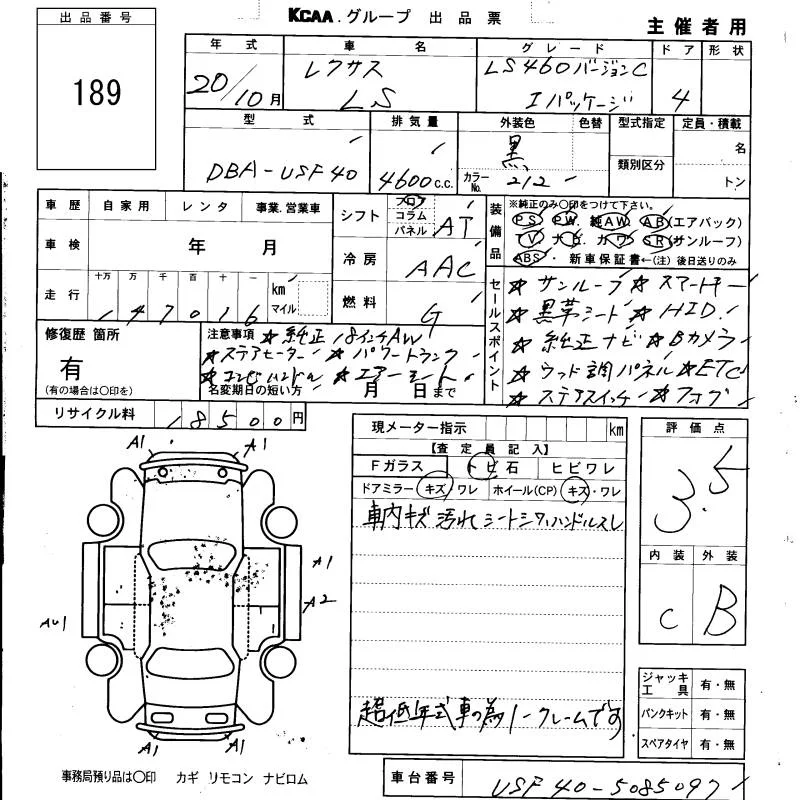 出品番号
189
KCAA.グループ 出品票
主催者用
年式 車名 グレード ドア 形状
20/10月 レクサス LS LS460バージョンC Iパッケージ 4
型式 排気量 外装色 色替 型式指定 定員・積載
DBA-USF40 4600c.c. 黒 カラーNo. 212 類別区分 名 トン
車歴 自家用 レンタ 事業.営業車
車検 年 月
十万 万 千 百 十 一
走行 147016 km マイル
シフト フロア コラム パネル AT
冷房 AAC
燃料 G
装備品
※純正のみ○印をつけて下さい。
PS. PW. 純AW. AB(エアバック)
TV. ナビ. カワ. SR(サンルーフ)
ABS. 新車保証書←(注)後日送りのみ
セールスポイント
★サンルーフ ★スマートキー
★黒革シート ★HID
★純正ナビ ★Bカメラ
★ウッド調パネル ★ETC
★ステアスイッチ ★フォグ
修復歴 箇所
有
(有の場合は○印を)
注意事項 ★純正18インチAW
★ステアヒーター ★パワートランク
★コンビハンドル ★エアーシート
名変期日の短い方 月 日まで
リサイクル料 18500円
現メーター指示 km
【査定員記入】
Fガラス トビ石 ヒビワレ
ドアミラー キズ/ワレ ホイール(CP) キズ・ワレ
車内キズ 汚れ シートシワ ハンドルスレ
超低年式車の為ノークレームです
評価点
3.5
内装 外装
C B
A1 A1
A1
A2
AU1
A1 A1
ジャッキ工具 有・無
パンクキット 有・無
スペアタイヤ 有・無
事務局預り品は○印 カギ リモコン ナビロム
車台番号 USF40-5085097